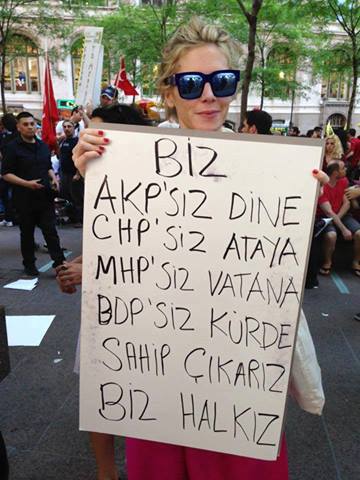 BİZ
AKP'SIZ DİNE
CHP'SİZ ATAYA
MHP'SİZ VATANA
BDP'SİZ KÜRDE
SAHİP ÇIKARIZ
BİZ HALKIZ